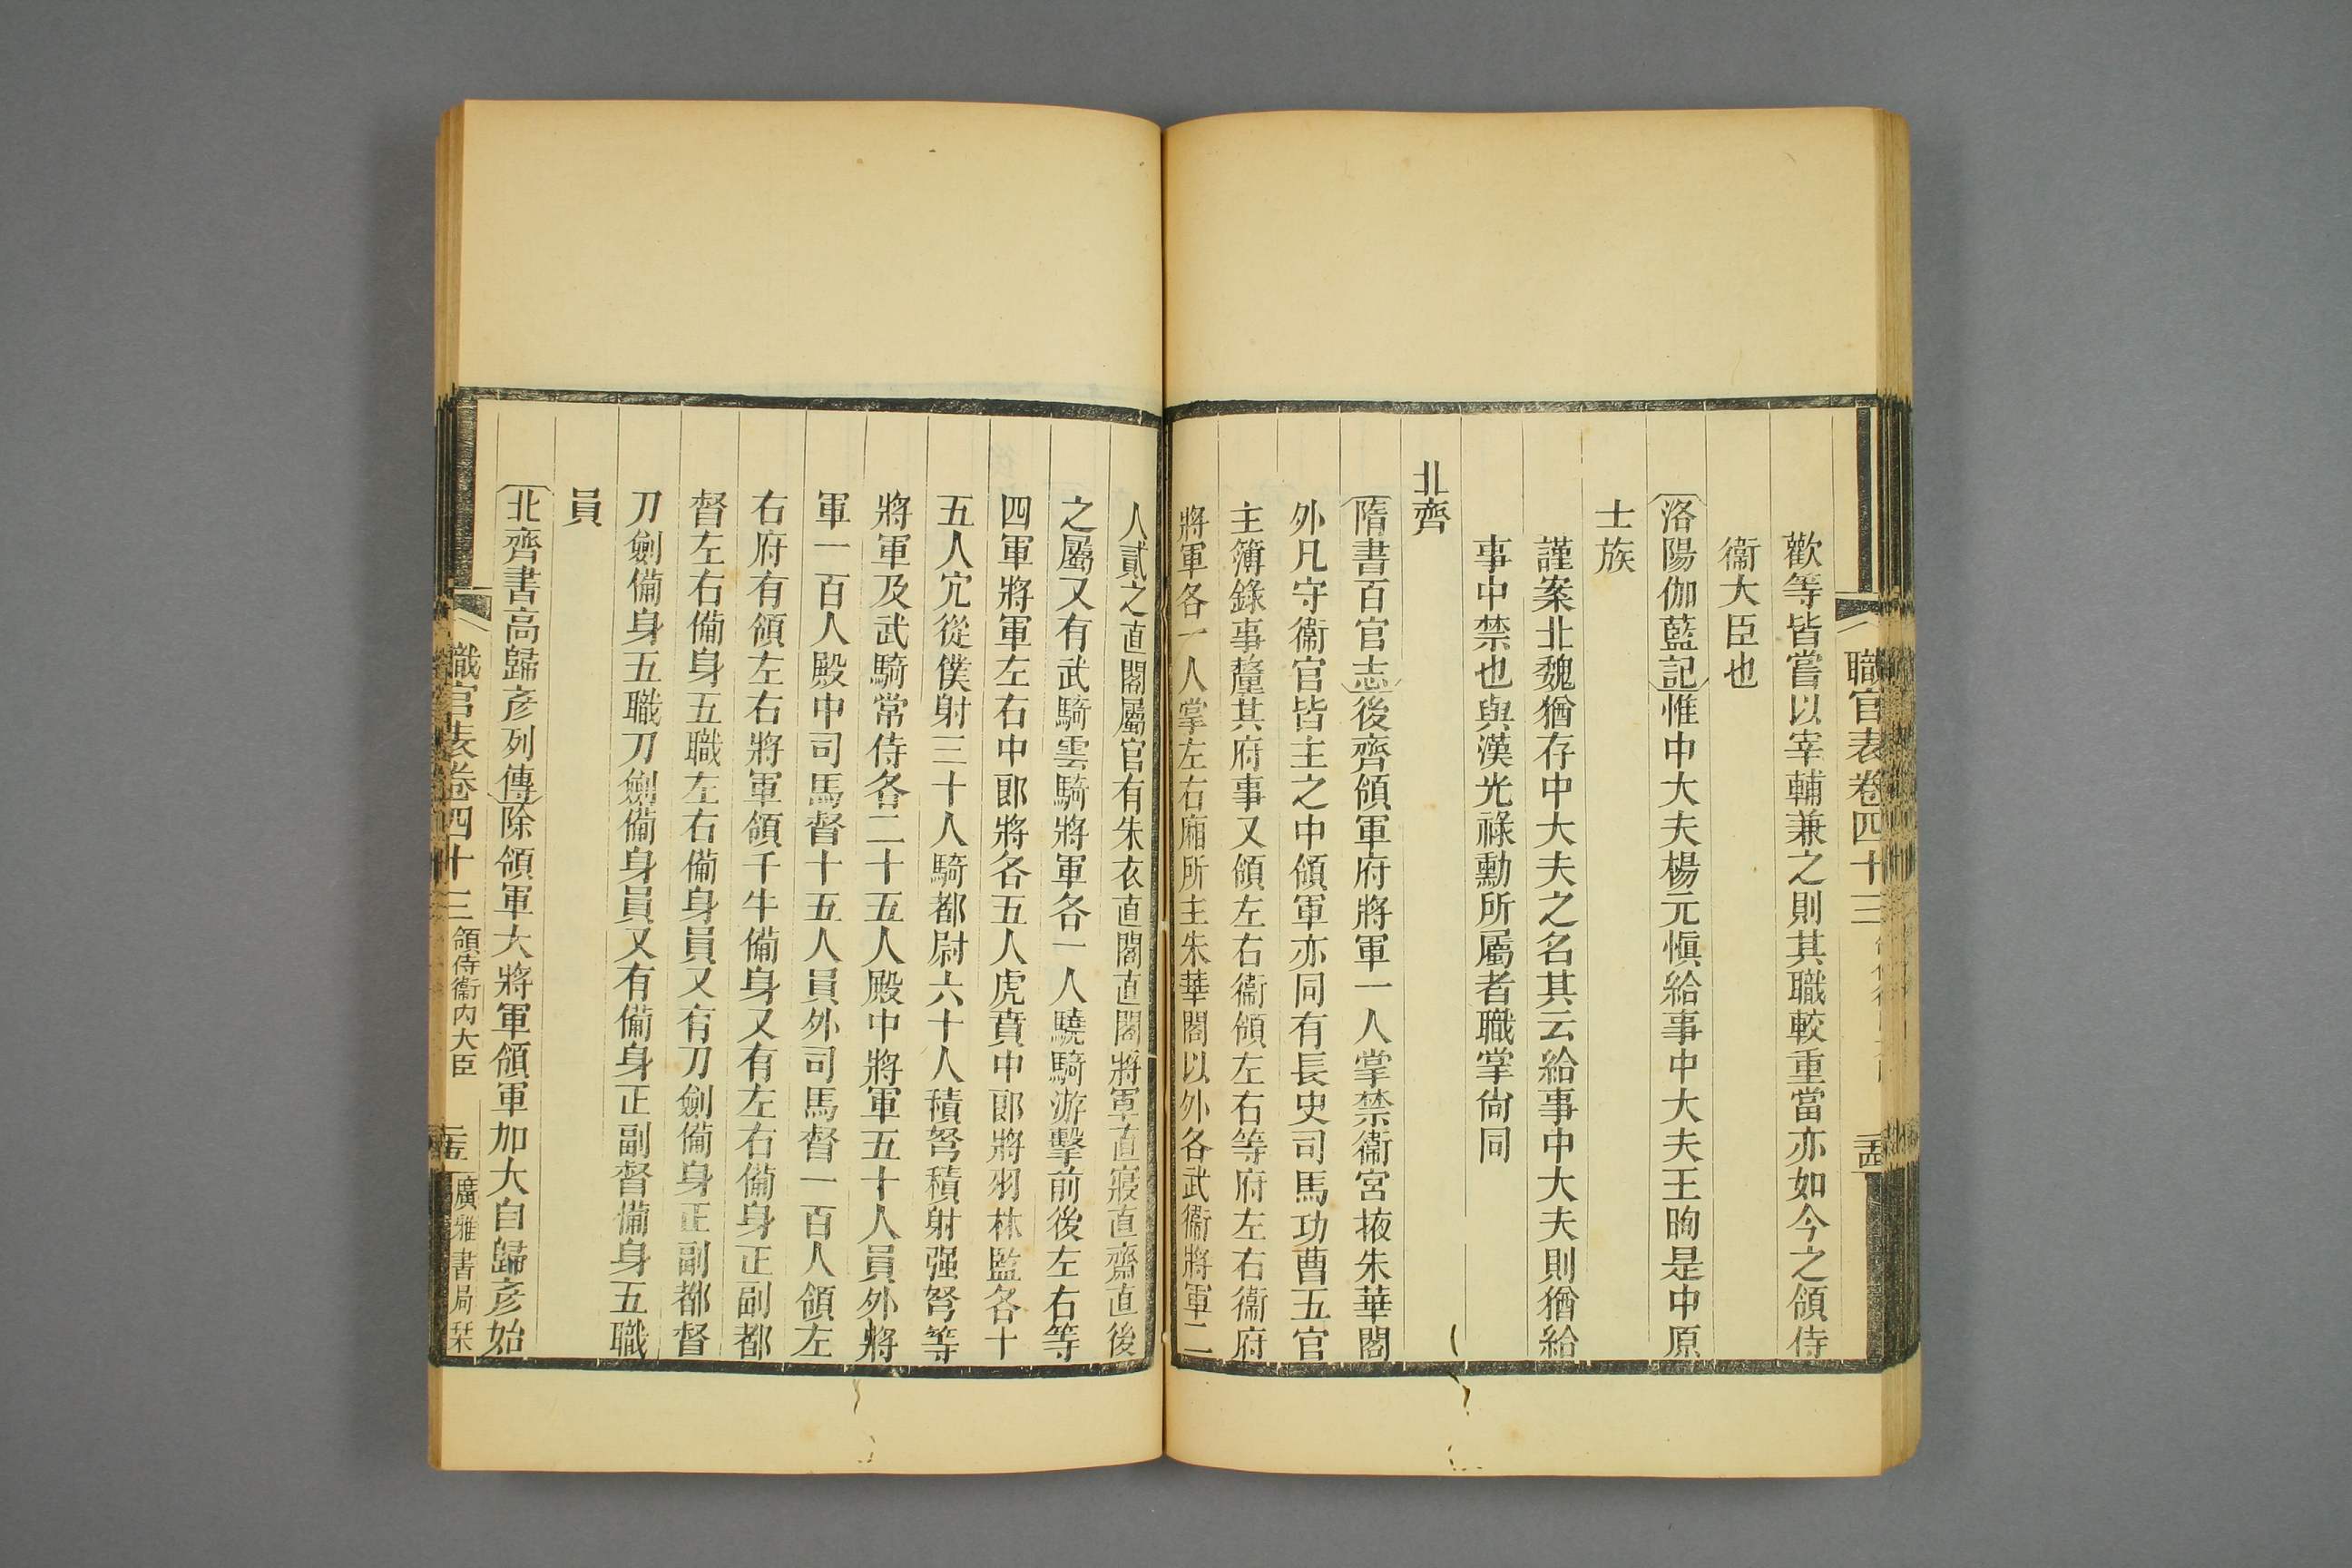 職官表卷四十三
歡等皆嘗以宰輔兼之則其職較重當亦如今之領侍
衞大臣也
洛陽伽藍記惟中大夫楊元愼給事中大夫王晌是中原
士族
謹案北魏猶存中大夫之名其云給事中大夫則猶給
事中禁也與漢光祿勳所屬者職掌尙同
北齊
隋書百官志後齊領軍府將軍一人掌禁衞宮掖朱華閣
外凡守衞官皆主之中領軍亦同有長史司馬功曹五官
主簿錄事釐其府事又領左右衞領左右等府左右衞府
將軍各一人掌左右廂所主朱華閣以外各武衞將軍二
人貳之直閣屬官有朱衣直閣直閣將軍直寢直齋直後
之屬又有武騎雲騎將軍各一人驍騎游擊前後左右等
四軍將軍左右中郞將各五人虎賁中郞將羽林監各十
五人宂從僕射三十人騎都尉六十人積弩積射强弩等
將軍及武騎常侍各二十五人殿中將軍五十人員外將
軍一百人殿中司馬督十五人員外司馬督一百人領左
右府有領左右將軍領千牛備身又有左右備身正副都
督左右備身五職左右備身員又有刀劍備身正副都督
刀劍備身五職刀劍備身員又有備身正副督備身五職
員
北齊書高歸彦列傳除領軍大將軍領軍加大自歸彦始
職官表卷四十三 領侍衞內大臣 廣雅書局栞